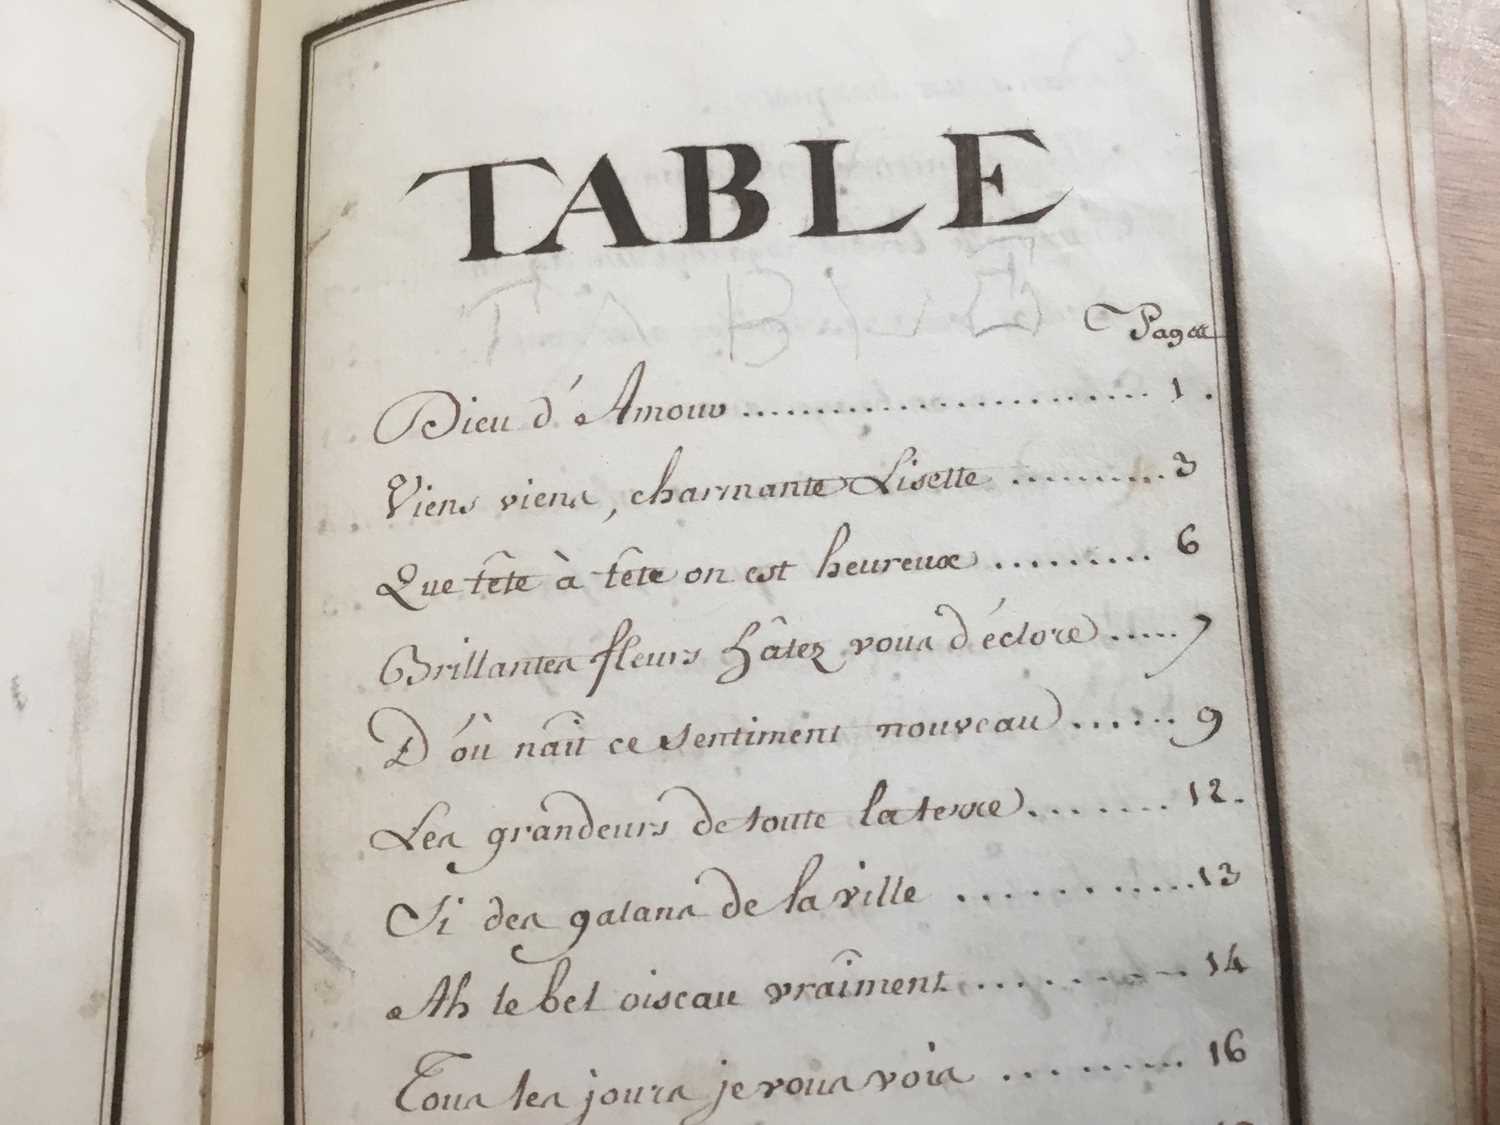 TABLE
TABLE
Pages
Dieu d'Amour ........................ 1.
Viens viens, charmante Lisette .......... 3
Que tête à tête on est heureux ......... 6
Brillantes fleurs hâtez vous d'éclore ..... 7
D'où nâit ce sentiment nouveau ...... 9
Les grandeurs de toute la terre ....... 12.
Si des galans de la ville ........... 13
Ah le bel oiseau vraîment ......... 14
Tous les jours je vous vois ......... 16